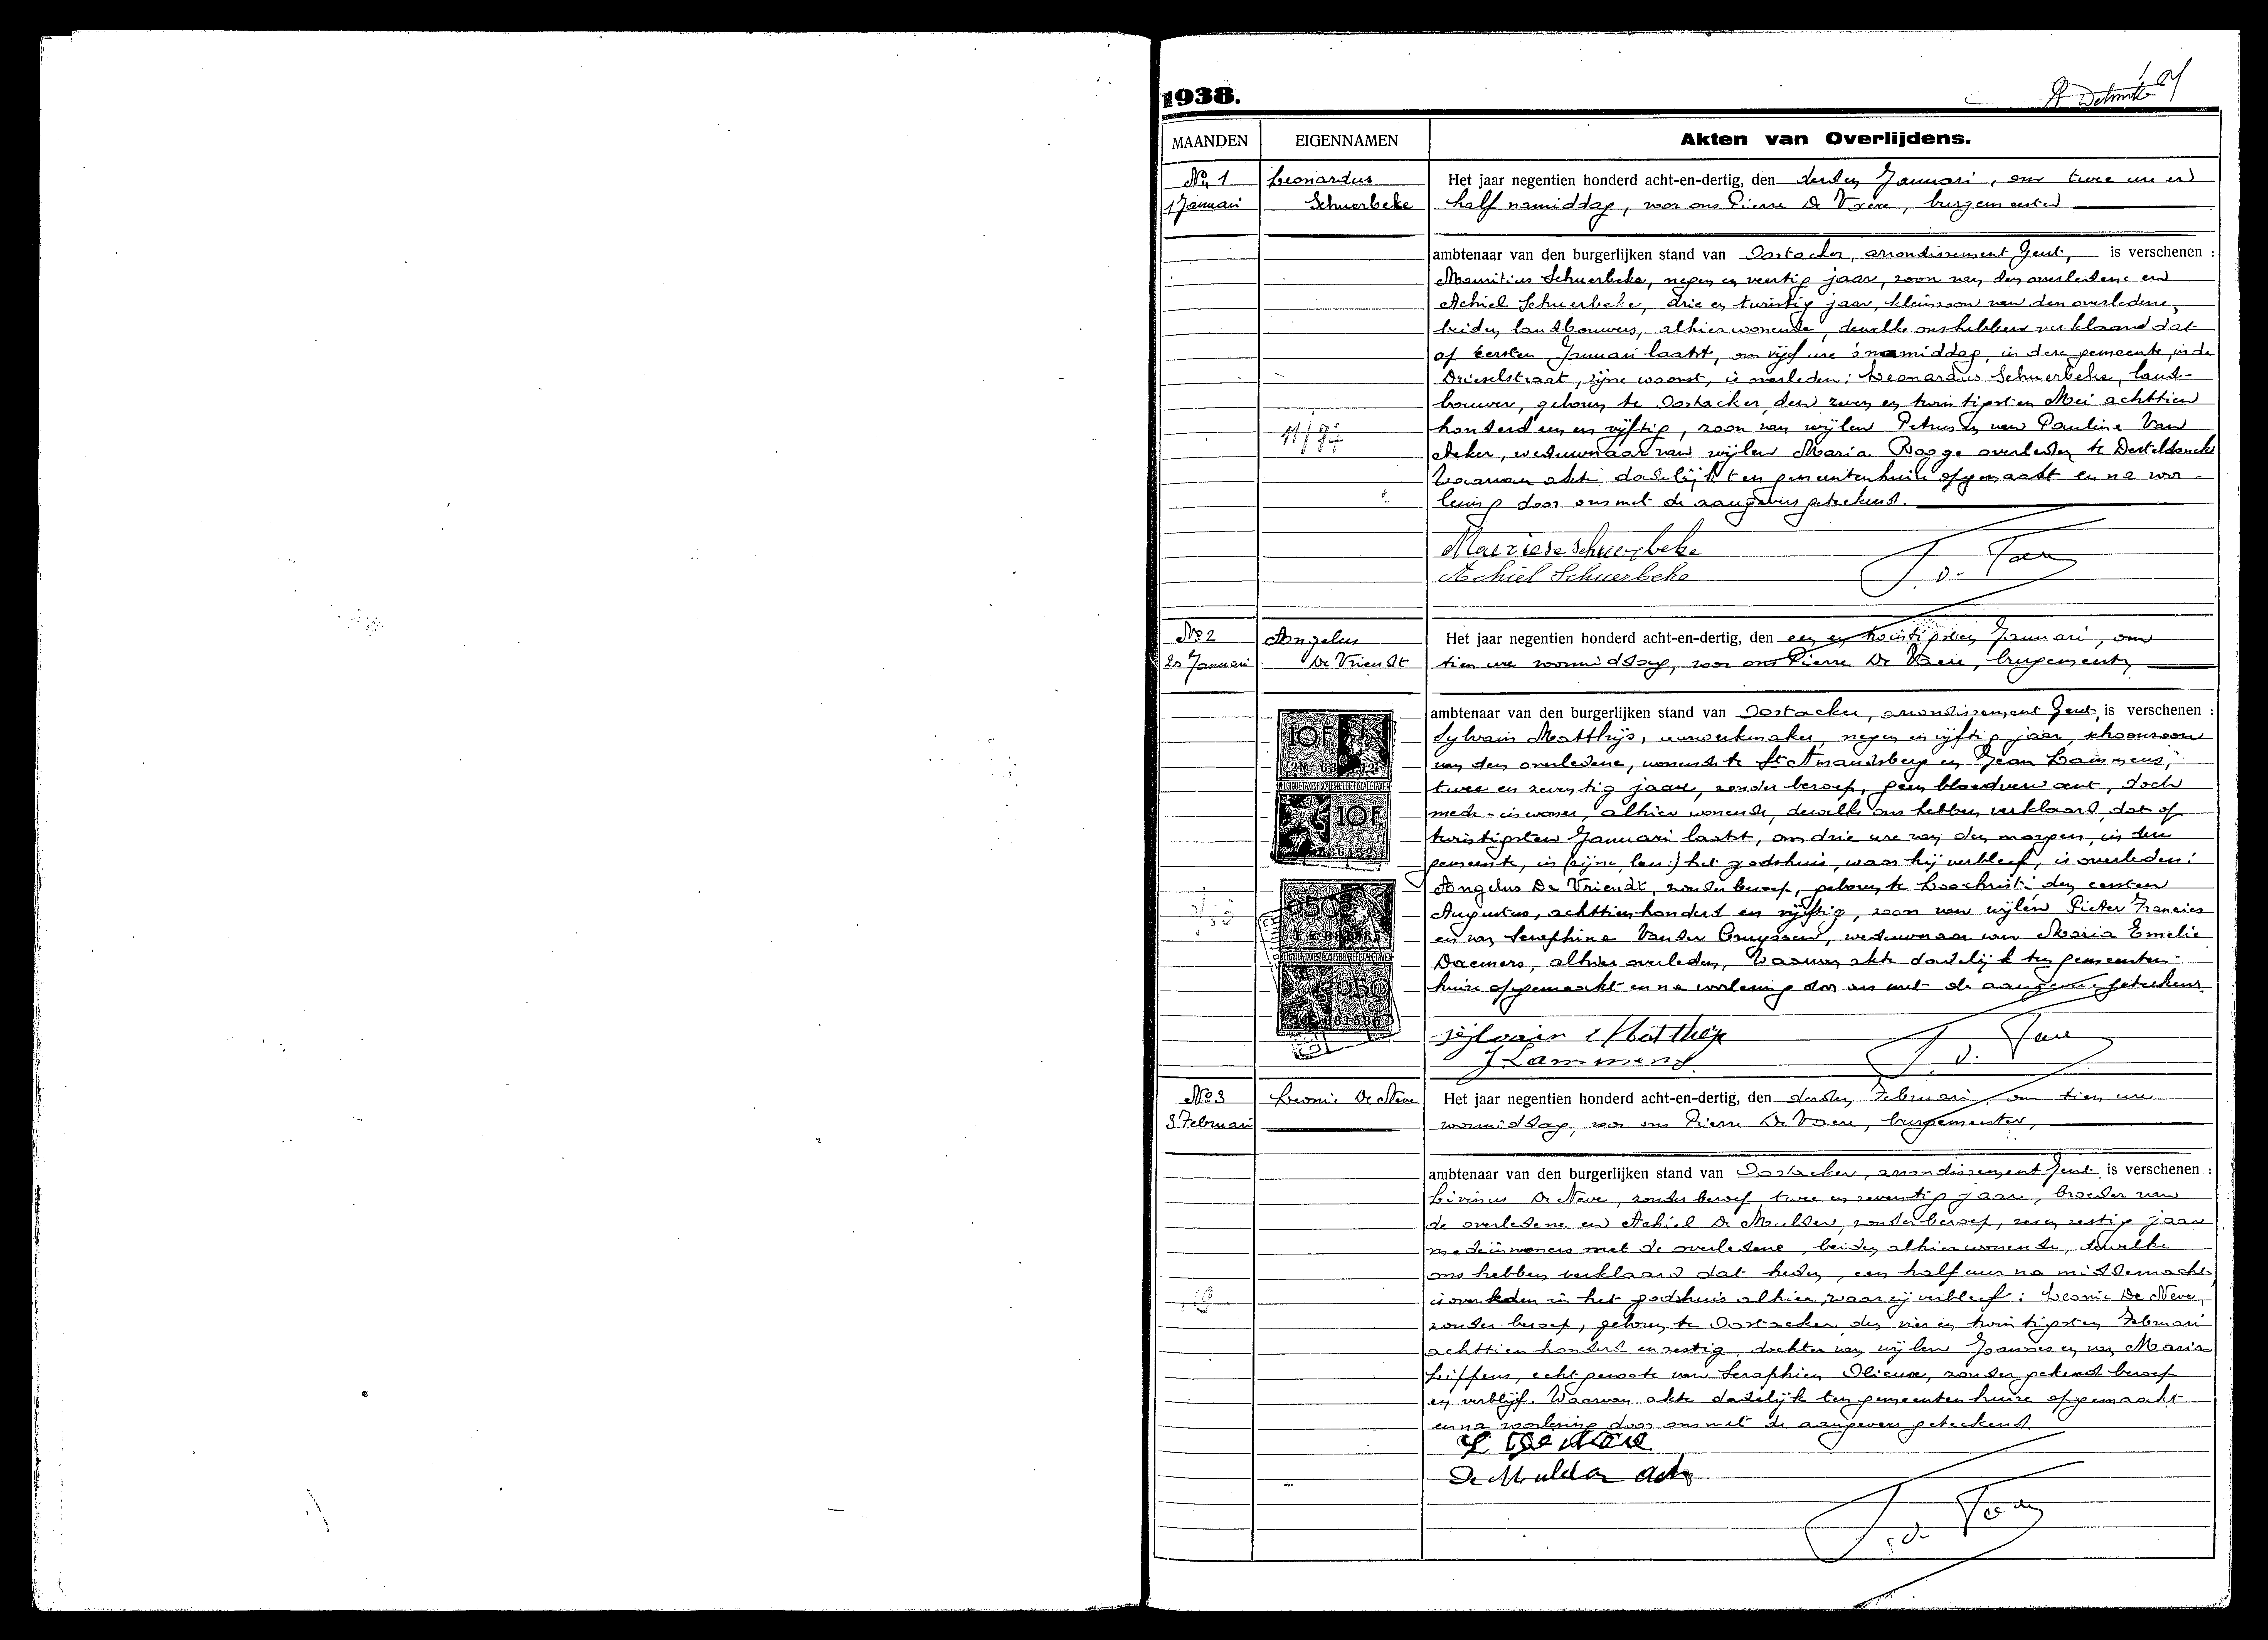 1938.
MAANDEN EIGENNAMEN Akten van Overlijdens.
No 1 Leonardus Het jaar negentien honderd acht-en-dertig, den derden Januari, om twee ure en
1 Januari Schuerbeke half namiddag, voor ons Pierre De Vaere, burgemeester
ambtenaar van den burgerlijken stand van Oostacker, arrondissement Gent, is verschenen :
Mauritius Schuerbeke, negen en veertig jaar, zoon van den overledene en
Achiel Schuerbeke, drie en twintig jaar, kleinzoon van den overledene,
beiden landbouwers, alhier wonende, dewelke ons hebben verklaard dat
op eersten Januari laatst, om vijf ure 's namiddag, in deze gemeente, in de
Drieselstraat, zijne woonst, is overleden: Leonardus Schuerbeke, land-
bouwer, geboren te Oostacker, den zeven en twintigsten Mei achttien
honderd een en vijftig, zoon van wijlen Petrus en van Pauline Van
Acker, weduwnaar van wijlen Maria Bogge overleden te Desteldonck
Waarvan akte dadelijk ten gemeentenhuize opgemaakt en na voor-
lezing door ons met de aangevers geteekend.
Mauriese Schuerbeke
Achiel Schuerbeke
No 2 Angelus Het jaar negentien honderd acht-en-dertig, den een en twintigsten Januari, om
20 Januari De Vriendt tien ure voormiddag, voor ons Pierre De Vaere, burgemeester,
ambtenaar van den burgerlijken stand van Oostacker, arrondissement Gent, is verschenen :
Sylvain Matthijs, uurwerkmaker, negen en vijftig jaar, schoonzoon
van den overledene, wonende te St Amandsberg en Jean Lammens,
twee en zeventig jaar, zonder beroep, geen bloedverwant, doch
mede-inwoner, alhier wonende, dewelke ons hebben verklaard, dat op
twintigsten Januari laatst, om drie ure van den morgen, in deze
gemeente, in (zijne, lees:) het godshuis, waar hij verbleef, is overleden:
10F
10F
Angelus De Vriendt, zonder beroep, geboren te Loochristi den eersten
Augustus, achttienhonderd en vijftig, zoon van wijlen Pieter Francies
en van Seraphine Van der Cruyssen, weduwnaar van Maria Emelie
Daemers, alhier overleden, Waarvan akte dadelijk ten gemeenten-
huize opgemaakt en na voorlezing door ons met de aangevers geteekend.
Sylvain Matthijs
J Lammens
No 3 Leonie De Neve Het jaar negentien honderd acht-en-dertig, den derden Februari, om tien ure
3 Februari voormiddag, voor ons Pierre De Vaere, burgemeester,
ambtenaar van den burgerlijken stand van Oostacker, arrondissement Gent is verschenen :
Livinus De Neve, zonder beroep, twee en zeventig jaar, broeder van
de overledene en Achiel De Mulder, zonder beroep, zestig jaar
medeinwoners met de overledene, beiden alhier wonende, dewelke
ons hebben verklaard dat heden, een half uur na middernacht,
is overleden in het godshuis alhier, waar zij verbleef: Leonie De Neve,
zonder beroep, geboren te Oostacker den vier en twintigsten Februari
achttien honderd en zestig, dochter van wijlen Joannes en van Maria
Lippens, echtgenoote van Seraphien Olieux, zonder gekend beroep
en verblijf. Waarvan akte dadelijk ten gemeentenhuize opgemaakt
en na voorlezing door ons met de aangevers geteekend
L De Neve
De Mulder Ach